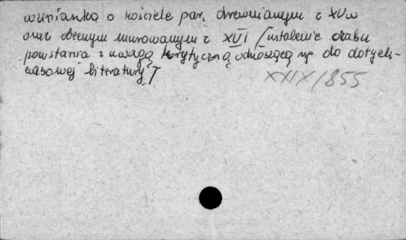 wzmianka o kościele par. drewnianym z XV w
oraz obecnym murowanym z XVI /ustalenie czasu
powstania z uwagą krytyczną odnoszącą się do dotych-
czasowej literatury/
XXIX/855